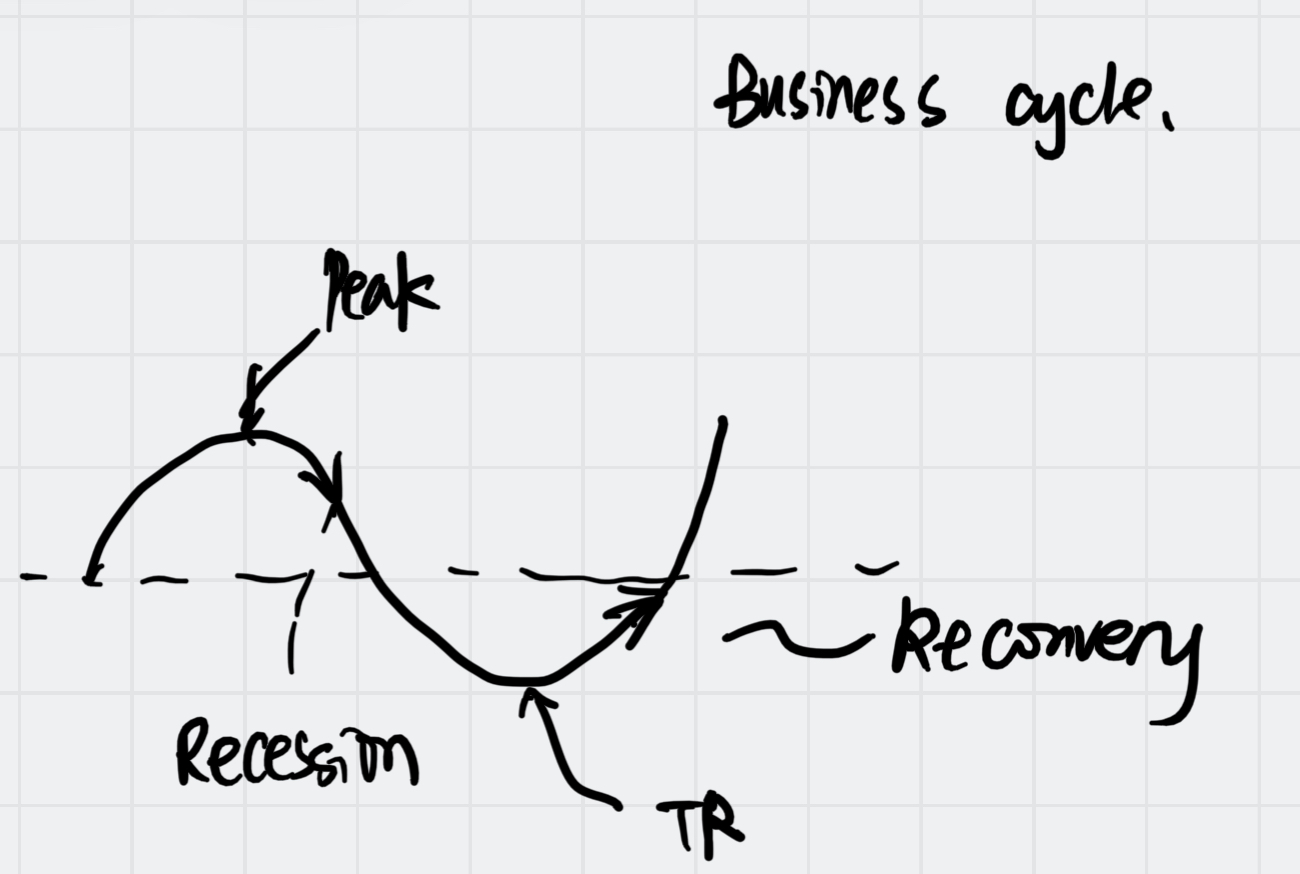 Business cycle.
Peak
Reconvery
Recession
TR